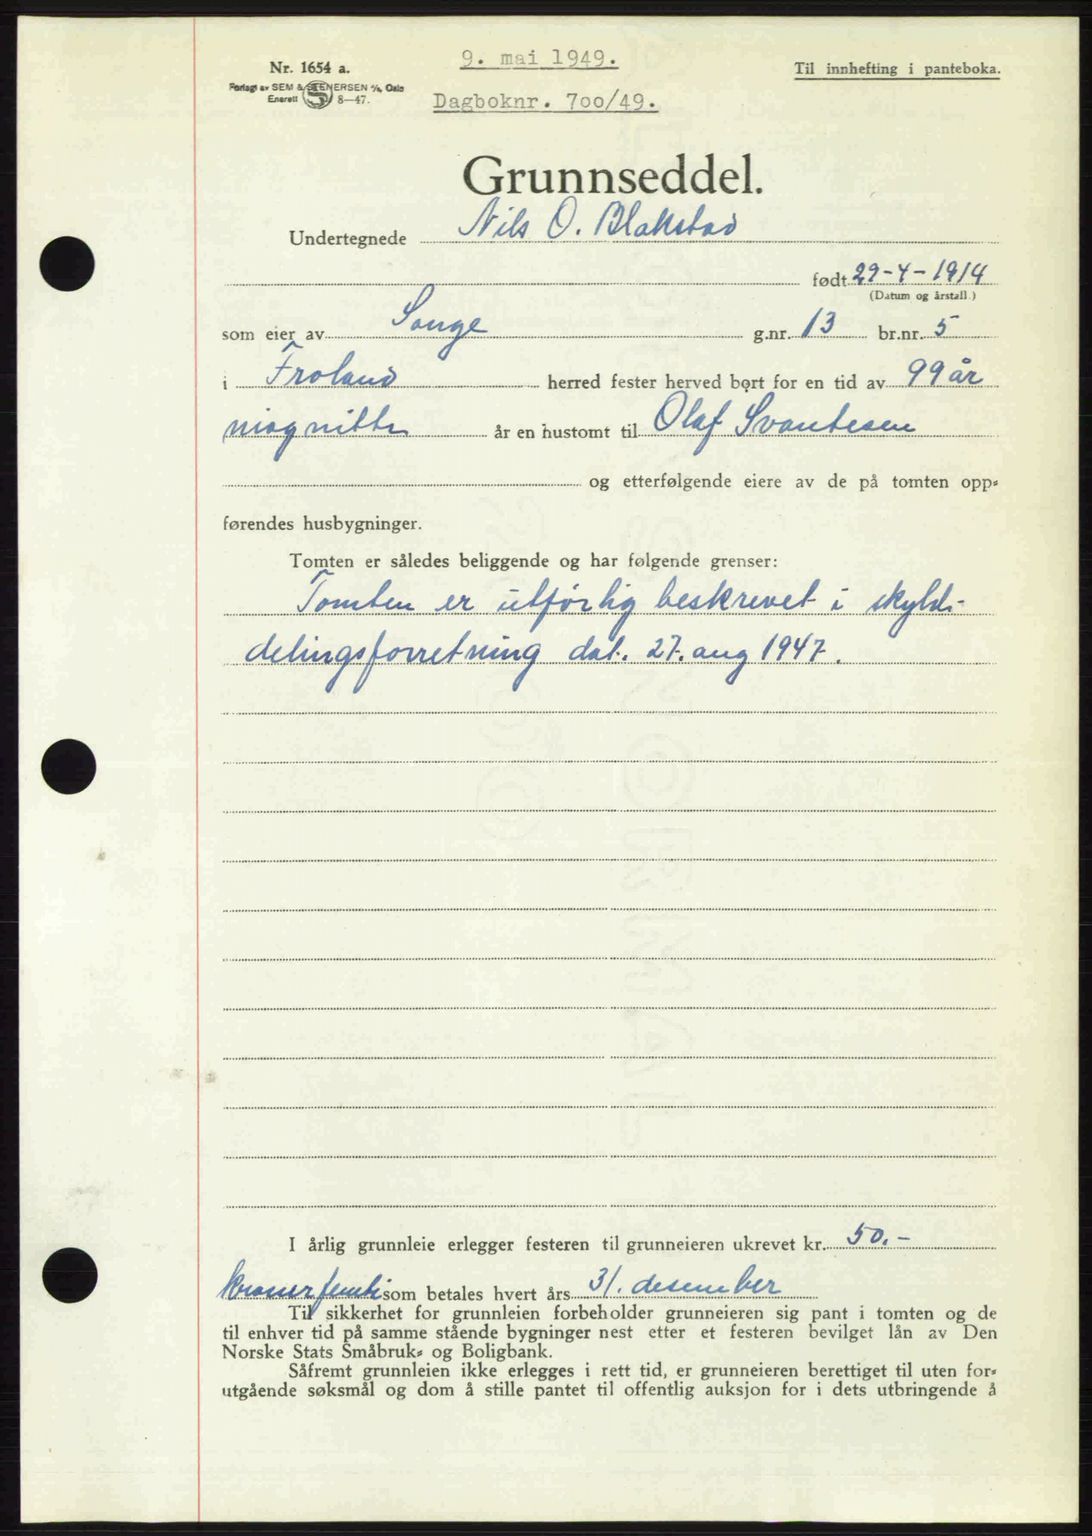 9. mai 1949.
Nr. 1654 a.
Til innhefting i panteboka.
Forlagt av SEM & STENERSEN A/s, Oslo
Enerett 8—47.
Dagboknr. 700/49.
Grunnseddel.
Undertegnede Nils O. Blakstad
født 29-4-1914
(Datum og årstall.)
som eier av Songe g.nr. 13 br.nr. 5
i Froland herred fester herved bort for en tid av 99 år
niognitti år en hustomt til Olaf Svantesen
og etterfølgende eiere av de på tomten opp-
førendes husbygninger.
Tomten er således beliggende og har følgende grenser:
Tomten er utførlig beskrevet i skyld-
delingsforretning dat. 27. aug 1947.
I årlig grunnleie erlegger festeren til grunneieren ukrevet kr. 50.-
kroner femti som betales hvert års 31. desember
Til sikkerhet for grunnleien forbeholder grunneieren sig pant i tomten og de
til enhver tid på samme stående bygninger nest etter et festeren bevilget lån av Den
Norske Stats Småbruk- og Boligbank.
Såfremt grunnleien ikke erlegges i rett tid, er grunneieren berettiget til uten for-
utgående søksmål og dom å stille pantet til offentlig auksjon for i dets utbringende å